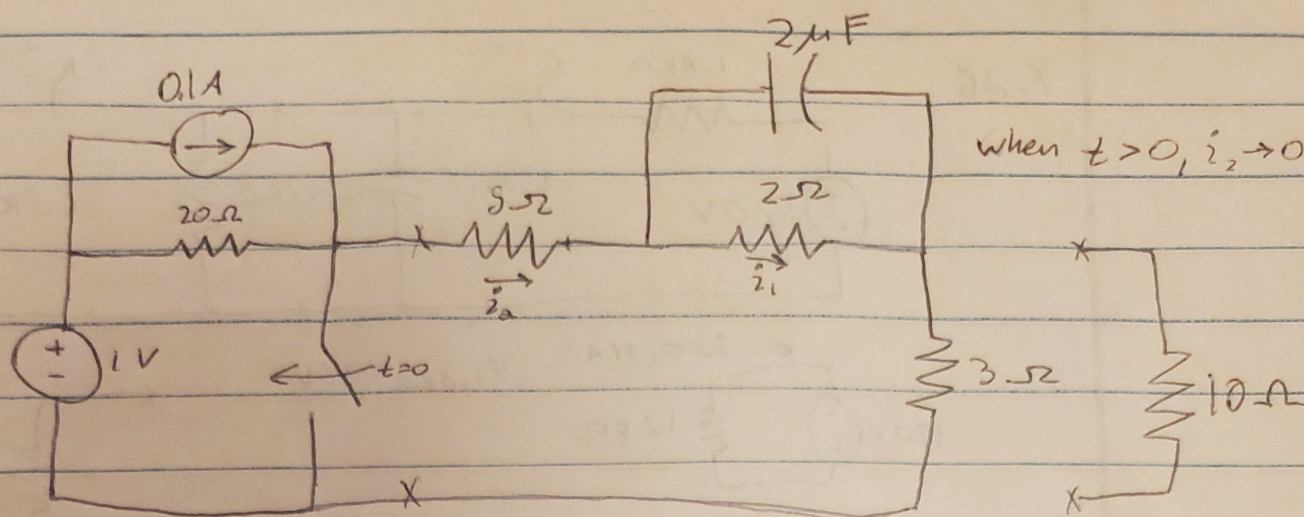 2μF
0.1A
when t>0, i₂→0
20Ω
5Ω
2Ω
iₐ
i₁
+
-
1V
t=0
3Ω
10Ω
x
x
x
x